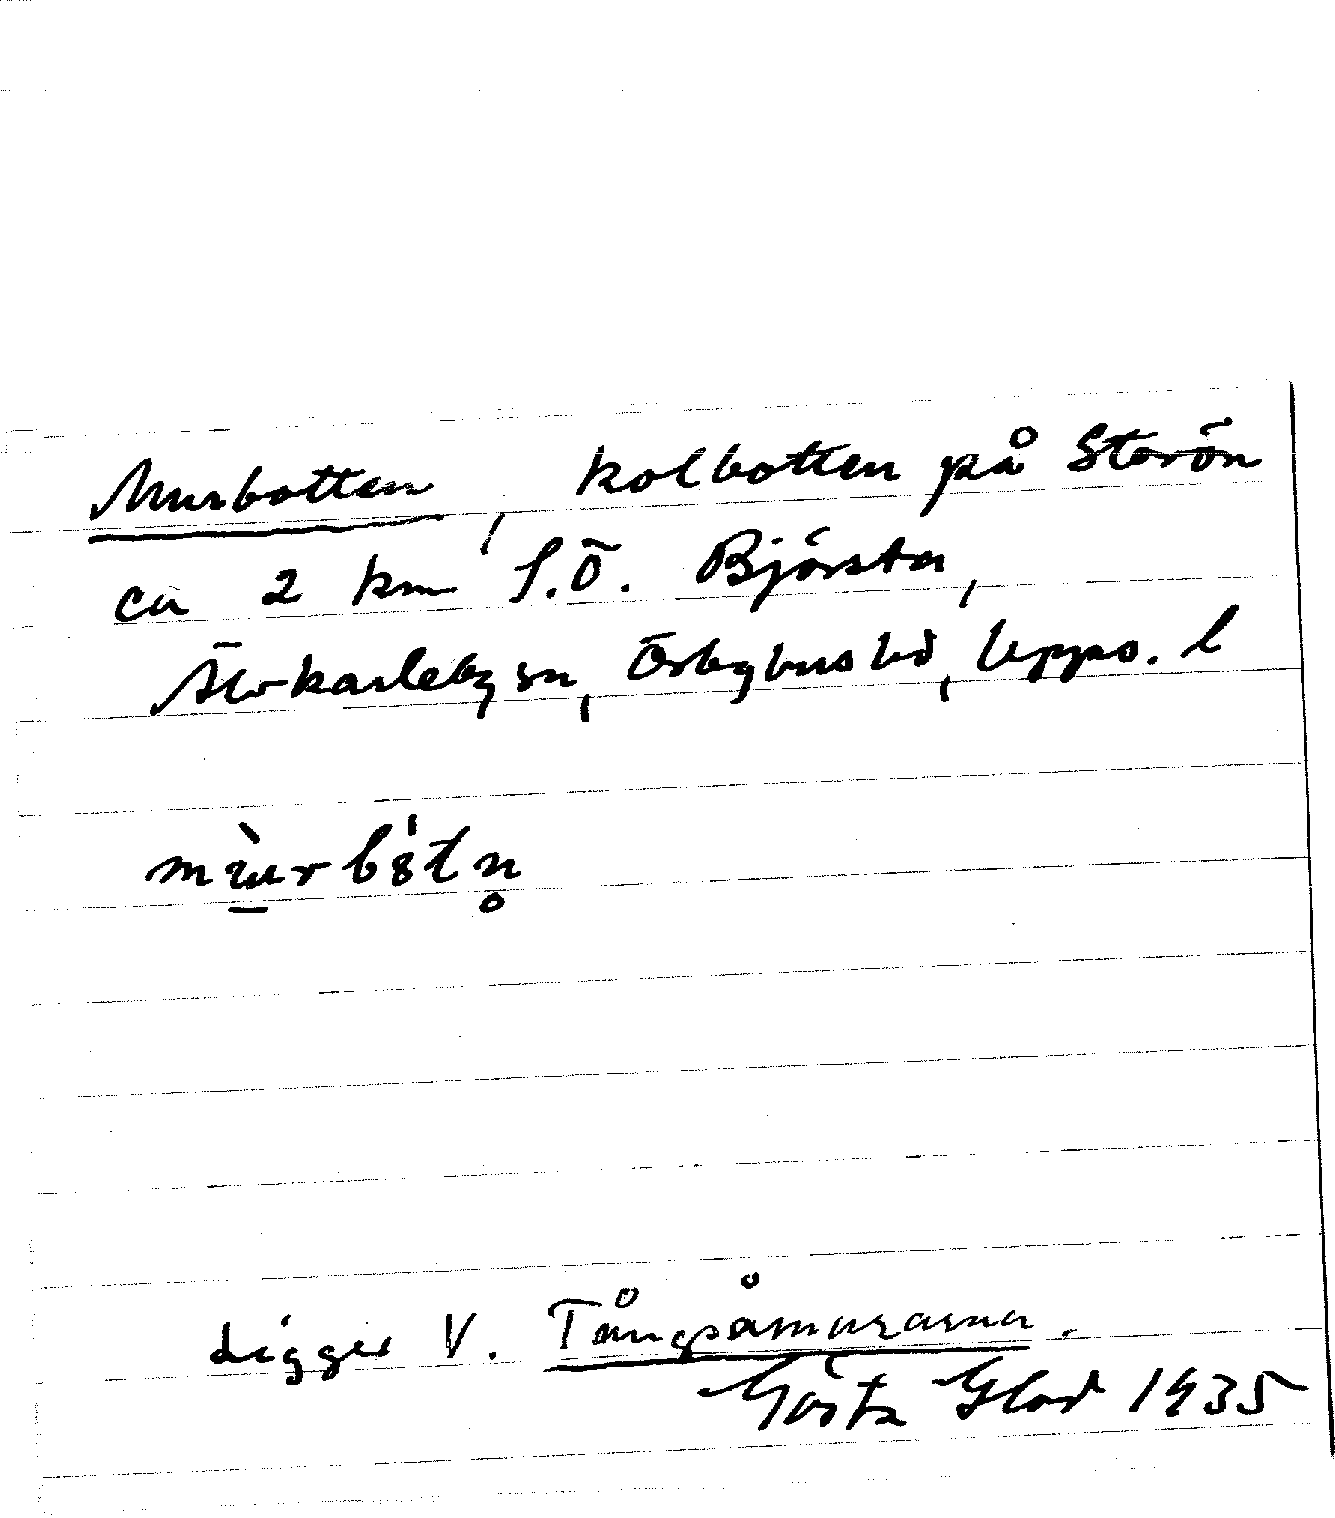 Murbotten, kolbotten på Storön
ca 2 km S.Ö. Björsta,
Älvkarleby sn, Örbyhus hd, Upps. l
Ligger V. Tångsåmurarna.
Gösta Glad 1935